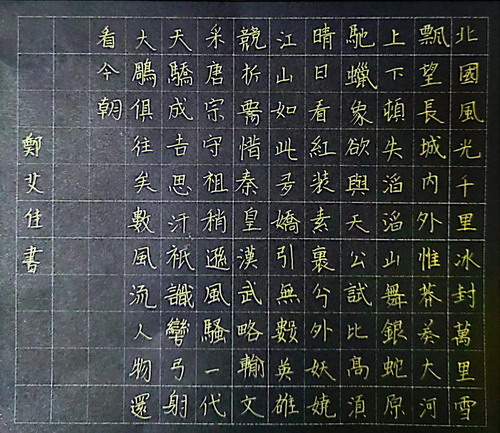 北國風光千里冰封萬里雪
飄望長城內外惟莽莽大河
上下頓失滔滔山舞銀蛇原
馳蠟象欲與天公試比高須
晴日看紅裝素裹兮外妖嬈
江山如此多嬌引無數英雄
競折腰惜秦皇漢武略輸文
采唐宗守祖稍遜風騷一代
天驕成吉思汗祇識彎弓射
大鵰俱往矣數風流人物還
看今朝
鄭艾佳書